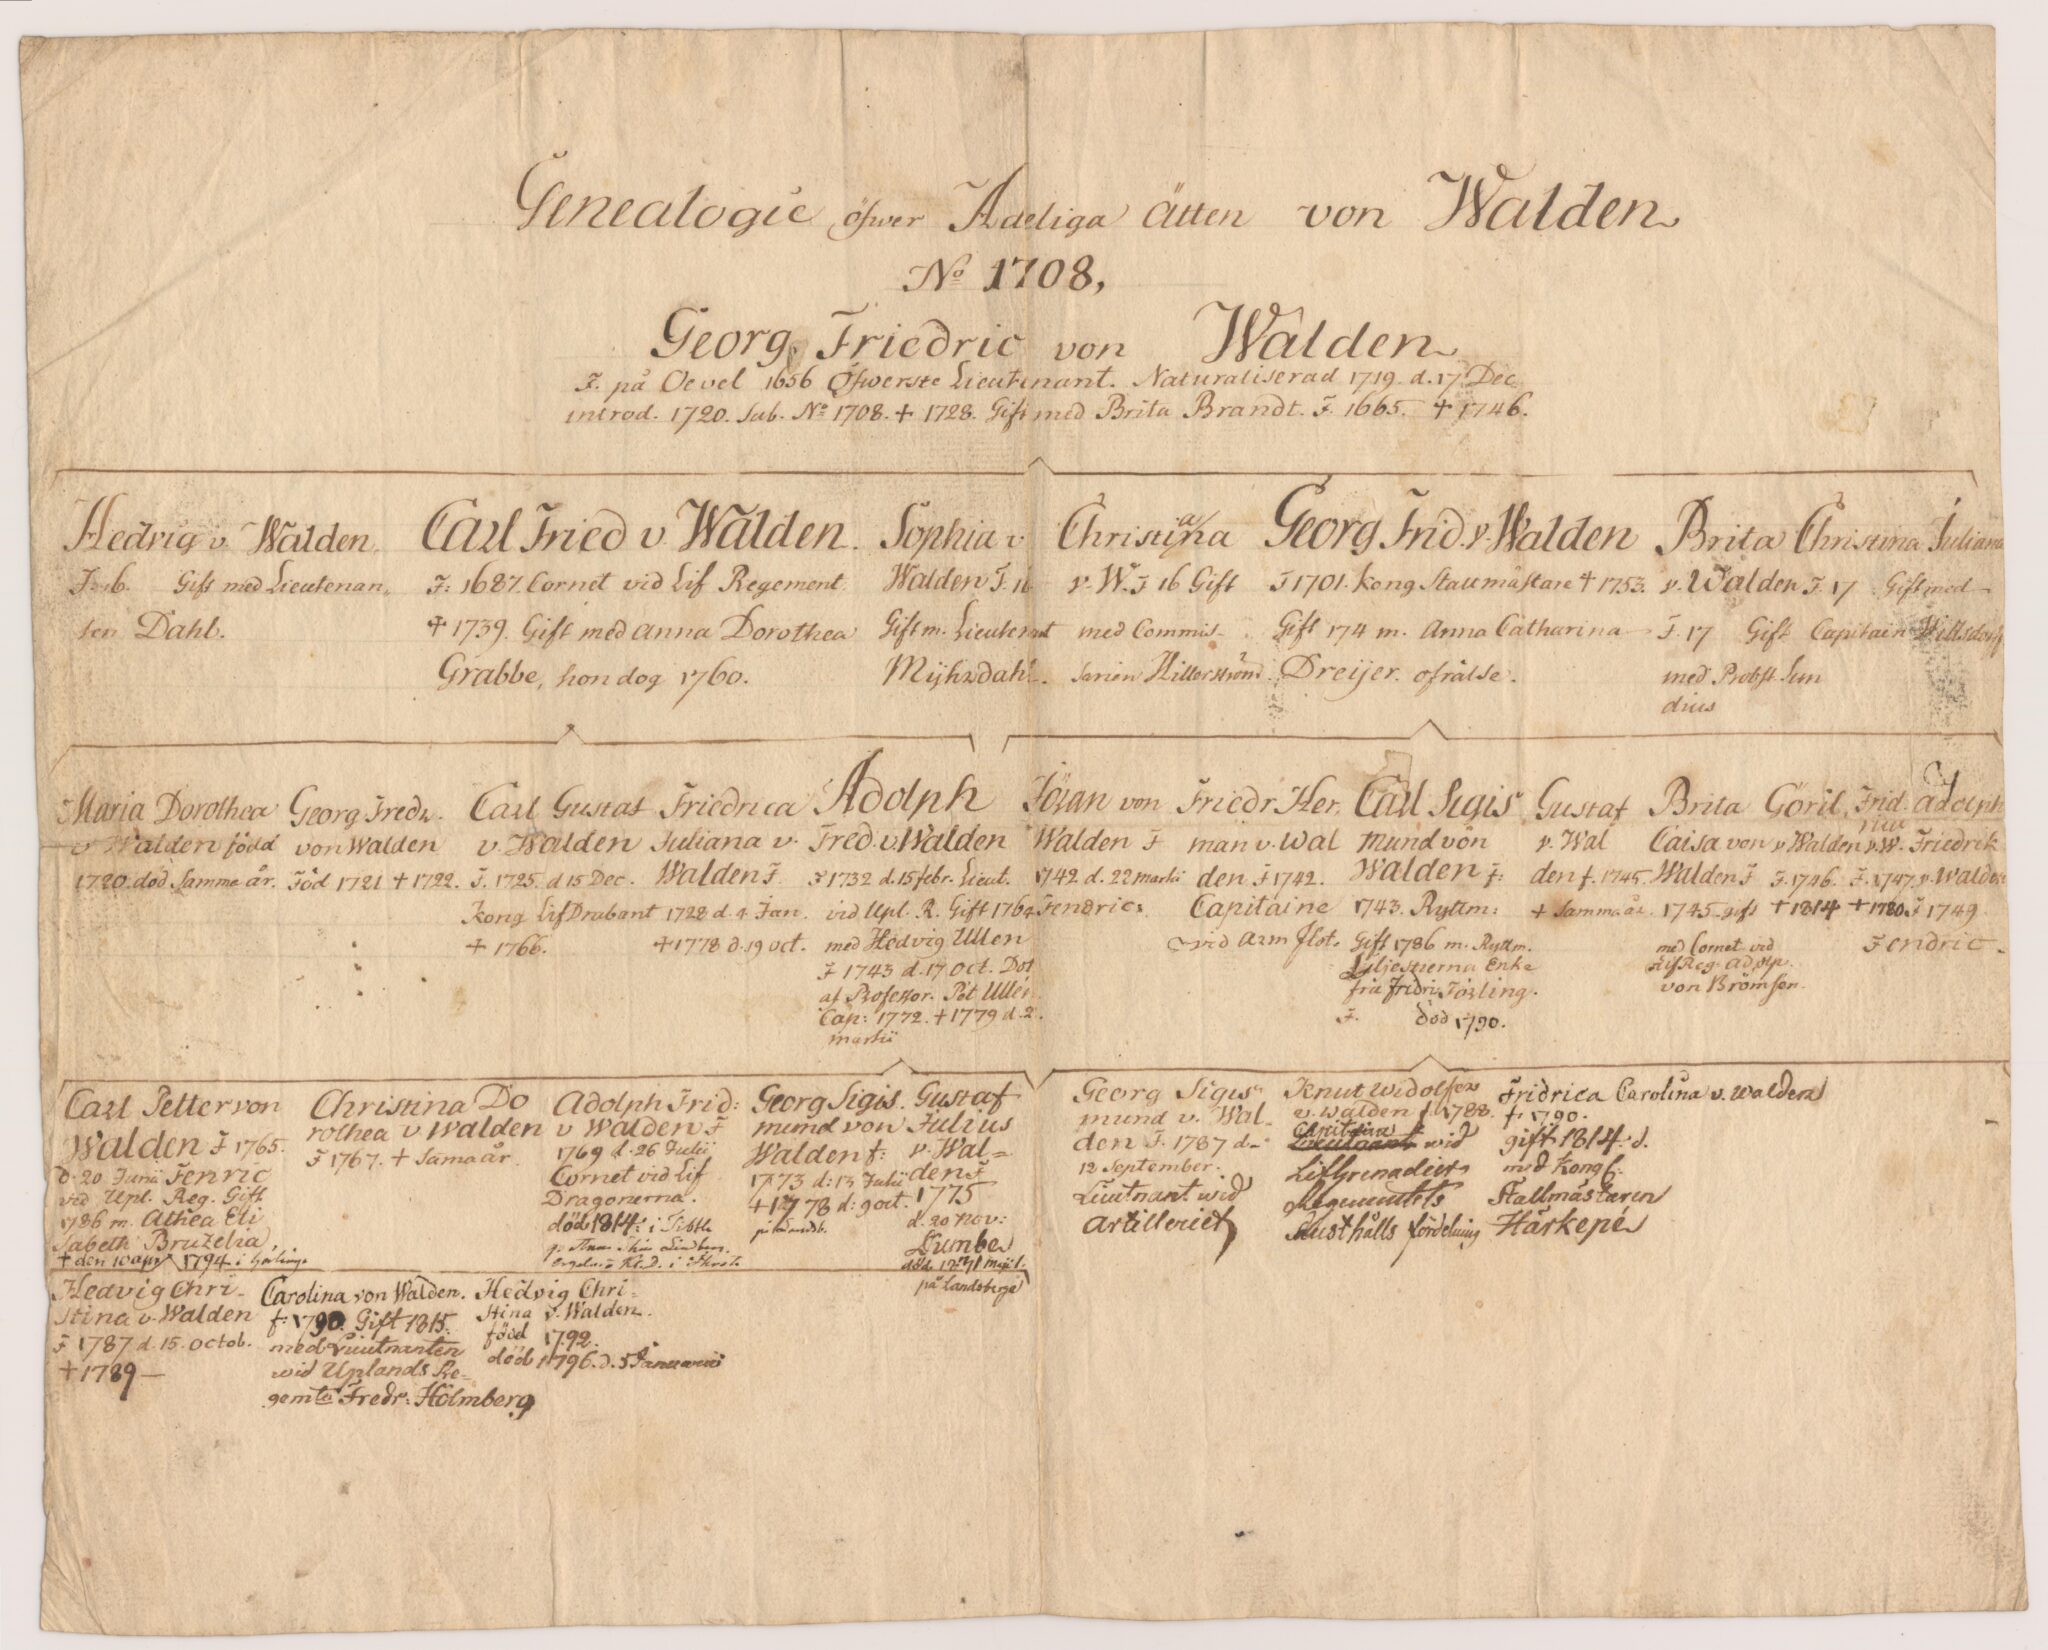 Genealogie öfwer Adeliga Ätten von Walden
No 1708,
Georg Friedric von Walden
F. på Oevel 1656 Öfwerste Lieutenant. Naturaliserad 1719. d. 17 Dec
introd. 1720. sub. No 1708. + 1728. Gift med Brita Brandt. F. 1665. + 1746.
Hedvig v. Walden.
F: 16. Gift med Lieutenan,
ten Dahl.
Carl Fried v. Walden.
F: 1687. Cornet vid Lif Regement.
+ 1739. Gift med Anna Dorothea
Grabbe, hon dog 1760.
Sophia v
Walden F. 16
Gift m. Lieutenant
Christina
v. W. F 16 Gift
med Commis-
sarien
Georg Frid. v. Walden
F 1701. Kong Stallmästare + 1753.
Gift 174 m. Anna Catharina
Dreijer. ofrälse.
Brita Christina
v. Walden F. 17
F. 17 Gift
med Probst Sun
dius
Juliana
Gift med
Capitain
Maria Dorothea
v Walden född
1720. död Samma år.
Georg Fredr.
von Walden
Föd 1721 + 1722.
Carl Gustaf
v. Walden
F. 1725. d 15 Dec.
Kong LifDrabant
+ 1766.
Friedrica
Juliana v.
Walden F.
1728 d. 9 Jan.
+ 1778 d. 19 oct.
Adolph
Fred. v. Walden
F 1732 d. 15 febr. Lieut.
vid Upl. R. Gift 1764
med Hedvig Ullen
F 1743 d. 17 Oct. Dot
af Professor. Pet Ullen.
Cap: 1772. + 1779 d. 2
martii
Jöran von
Walden F
1742 d. 22 martii
Fendric:
Friedr Her,
man v. Wal
den F 1742.
Capitaine
vid Arm Flot.
Carl Sigis
mund von
Walden f:
1743. Ryttm:
Gift 1786 m. Ryttm.
Liljestierna Enka
fru Fridric Törling.
F. död 1790.
Gustaf
v. Wal
den f. 1745.
+ Samma år.
Brita
Caisa von
Walden F
1745. gift
med Cornet vid
Lif Reg. Adolp.
von Brömsen.
Göril,
v Walden
F. 1746.
+ 1814
Frid.
rica
v. W.
F. 1747.
+ 1780.
Adolph
Friedrik
v. Walden
F 1749
Fendric.
Carl Petter von
Walden F 1765.
d. 20 Junii Fenric
vid Upl. Reg. Gift
1786 m. Athea Eli
sabeth Bruzelia,
+ den 10 apr 1794 i
Christina Do
rothea v Walden
F 1767. + Sama år.
Adolph Frid:
v Walden F
1769 d. 26 Julii
Cornet vid Lif
Dragonerna.
död 1814: i
Georg Sigis.
mund von
Walden f:
1773 d: 13 Julii
+ 1778 d: 9 oct.
Gustaf
Julius
v. Wal=
den F
1775
d. 20 Nov:
död
på Landsberga
Georg Sigis
mund v. Wal-
den F. 1787 d-
12 September.
Lieutnant wid
Artilleriet
Knut Widolfer
v. Walden f. 1788.
Capitaine
Lieutnant wid
LifGrenadier
Regementets
Rusthålls fördelning
Fridrica Carolina v. Walden
f. 1790.
gift 1814. d.
med Kongl.
Stallmästaren
Härkepé
Hedvig Chri-
stina v. Walden
F 1787 d. 15. octob.
+ 1789
Carolina von Walden.
f: 1790. Gift 1815.
med Lieutnanten
wid Uplands Re-
gemte Fredr: Holmberg
Hedvig Chri=
stina v. Walden.
född 1792.
död 1796. d. 5 Januarii